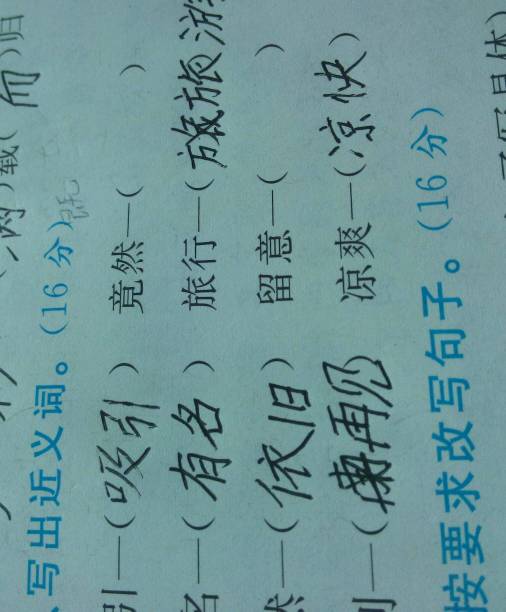 满)载(而)归
写出近义词。(16分)
引—(吸引) 竟然—( )
名—(有名) 旅行—(旅游
然—(依旧) 留意—( )
别—(再见) 凉爽—(凉快)
按要求改写句子。(16分)